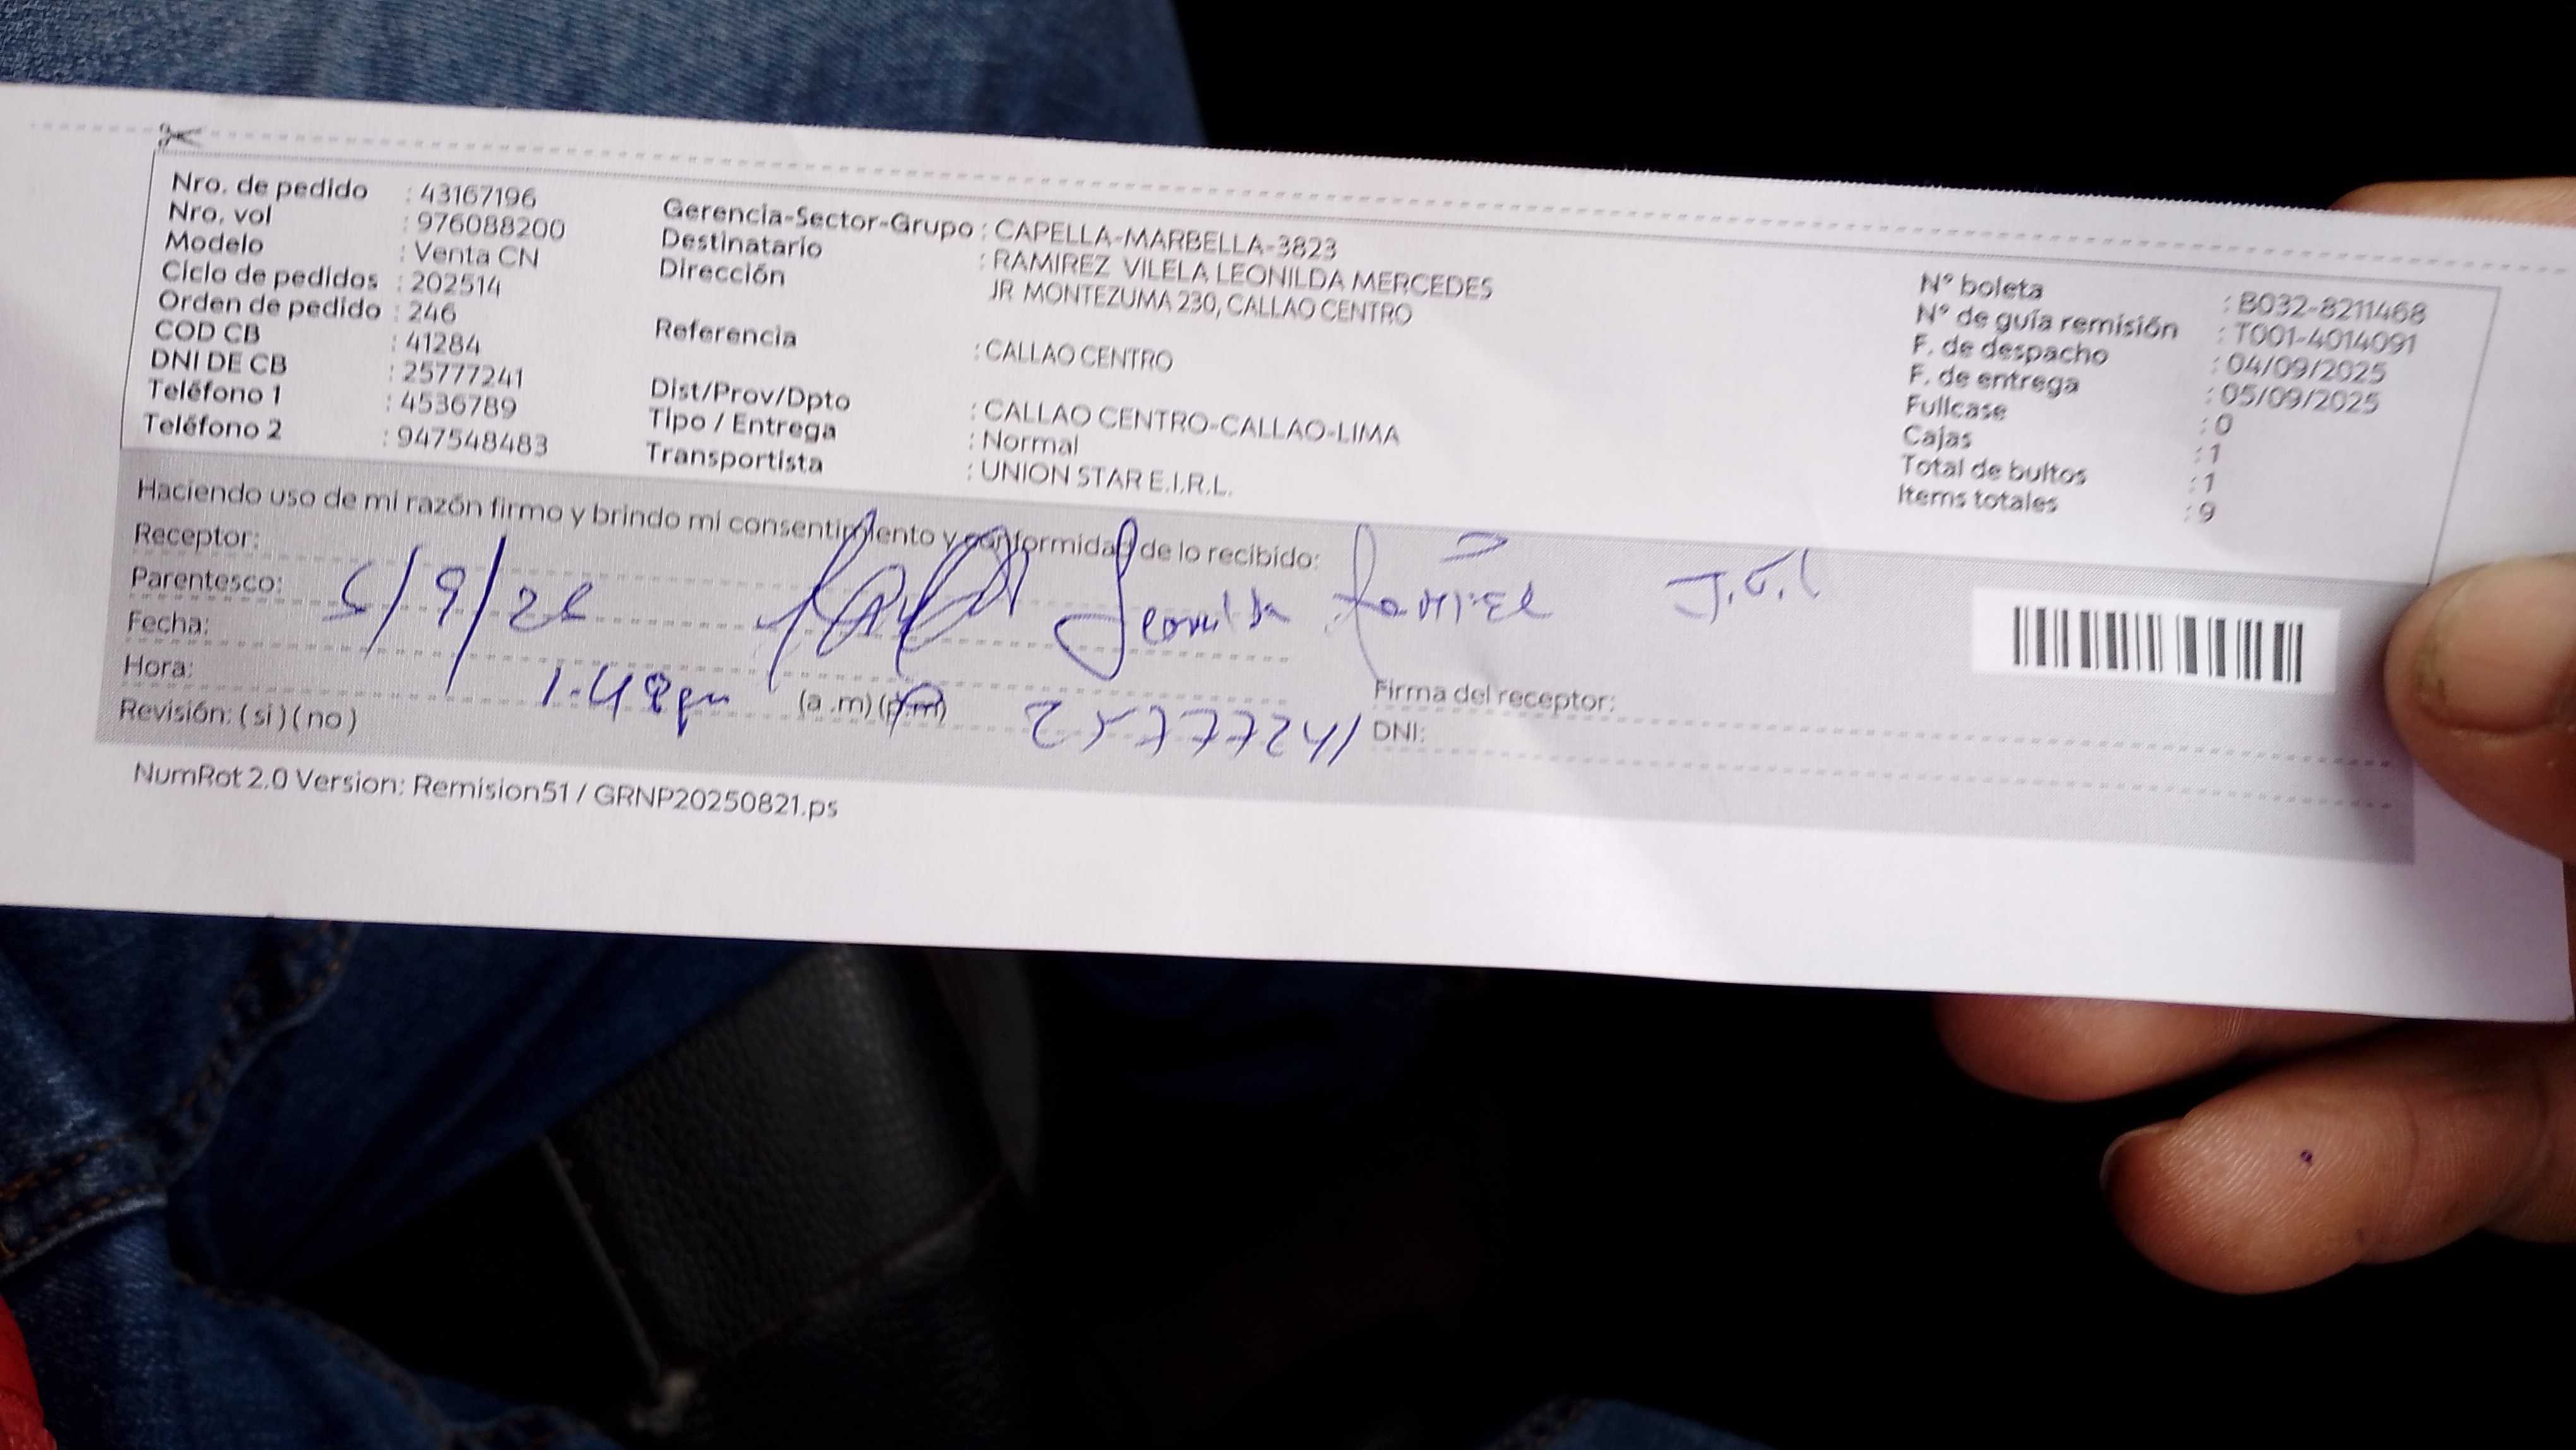 Nro. de pedido : 43167196
Nro. vol : 976088200
Modelo : Venta CN
Ciclo de pedidos : 202514
Orden de pedido : 246
COD CB : 41284
DNI DE CB : 25777241
Teléfono 1 : 4536789
Teléfono 2 : 947548483
Gerencia-Sector-Grupo : CAPELLA-MARBELLA-3823
Destinatario : RAMIREZ VILELA LEONILDA MERCEDES
Dirección JR MONTEZUMA 230, CALLAO CENTRO
Referencia : CALLAO CENTRO
Dist/Prov/Dpto : CALLAO CENTRO-CALLAO-LIMA
Tipo / Entrega : Normal
Transportista : UNION STAR E.I.R.L.
N° boleta : B032-8211468
N° de guía remisión : T001-4014091
F. de despacho : 04/09/2025
F. de entrega : 05/09/2025
Fullcase : 0
Cajas : 1
Total de bultos : 1
Items totales : 9
Haciendo uso de mi razón firmo y brindo mi consentimiento y conformidad de lo recibido:
Receptor:
Parentesco: 5/9/25 Leonilda Ramirez
Fecha:
Hora: 1.48pm (a .m) (p.m)
Revisión: ( si ) ( no )
25777241
Firma del receptor:
DNI:
NumRot 2.0 Version: Remision51 / GRNP20250821.ps